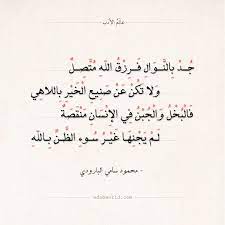 عالم الأدب
جُـدْ بِالنَّـوَالِ فَـرِزْقُ اللهِ مُتَّصِـلٌ
وَلا تَكُـنْ عَـنْ صَنِيعِ الْخَيْرِ بِاللاهِي
فَالْبُخْلُ وَالْجُبْنُ فِي الإِنْسَانِ مَنْقَصَةٌ
لَـمْ يَجْنِهَـا غَيْـرُ سُـوءِ الظَّـنِّ بِـاللهِ
- محمود سامي البارودي -
adabworld.com